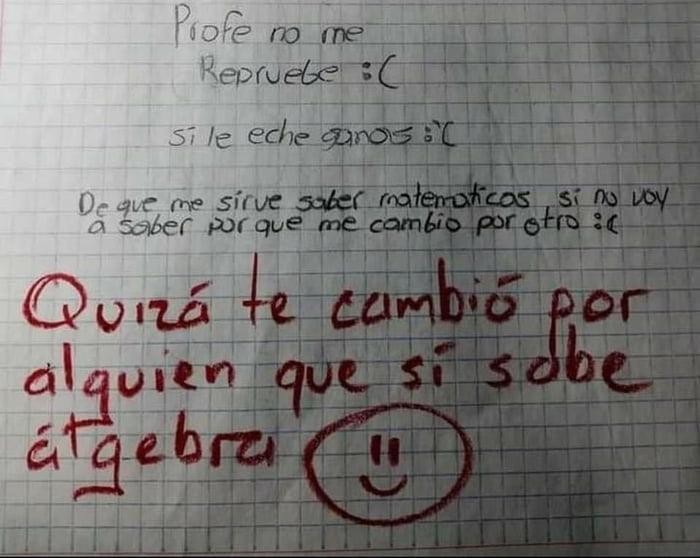 Profe no me
Repruebe :(
si le eche ganas :'(
De que me sirve saber matematicas, si no voy
a saber por que me cambio por otro :(
Quizá te cambió por
alguien que sí sabe
álgebra